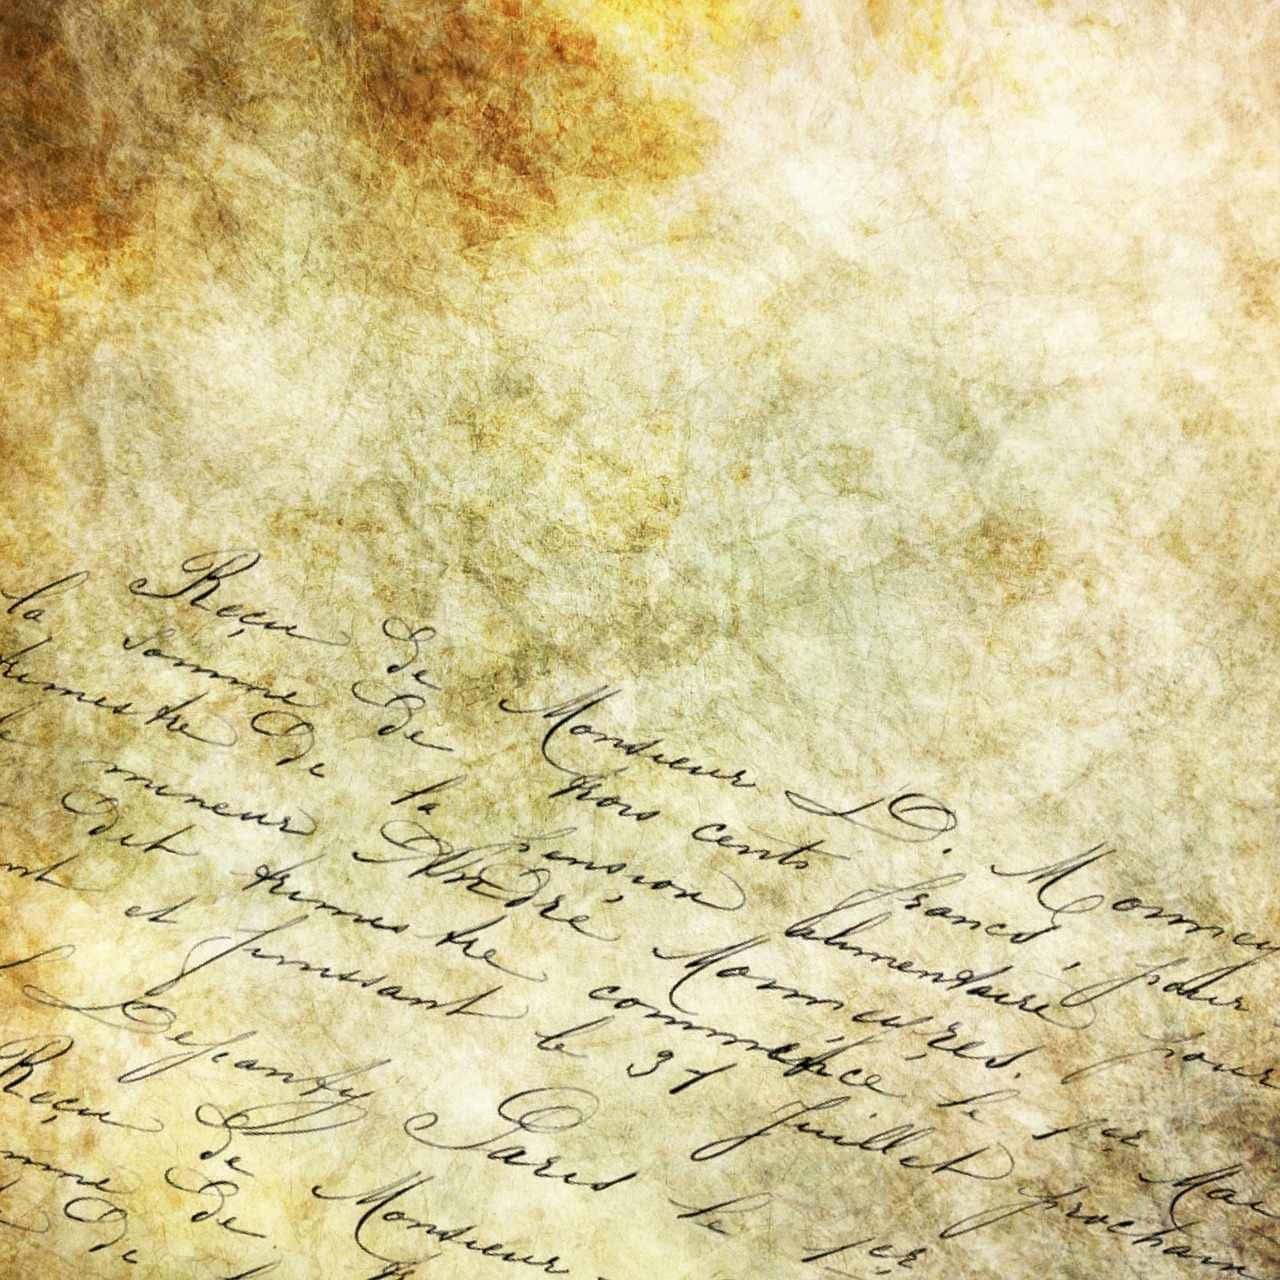 Reçu de Monsieur D. Monney
la Somme de trois cents francs, pour
trimestre de la pension alimentaire pour
le mineur André Monneyres.
dit trimestre commence le 1er Mai
nt et finissant le 31 Juillet prochain
Depanty Paris le 1er
Reçu de Monsieur
mme de
de